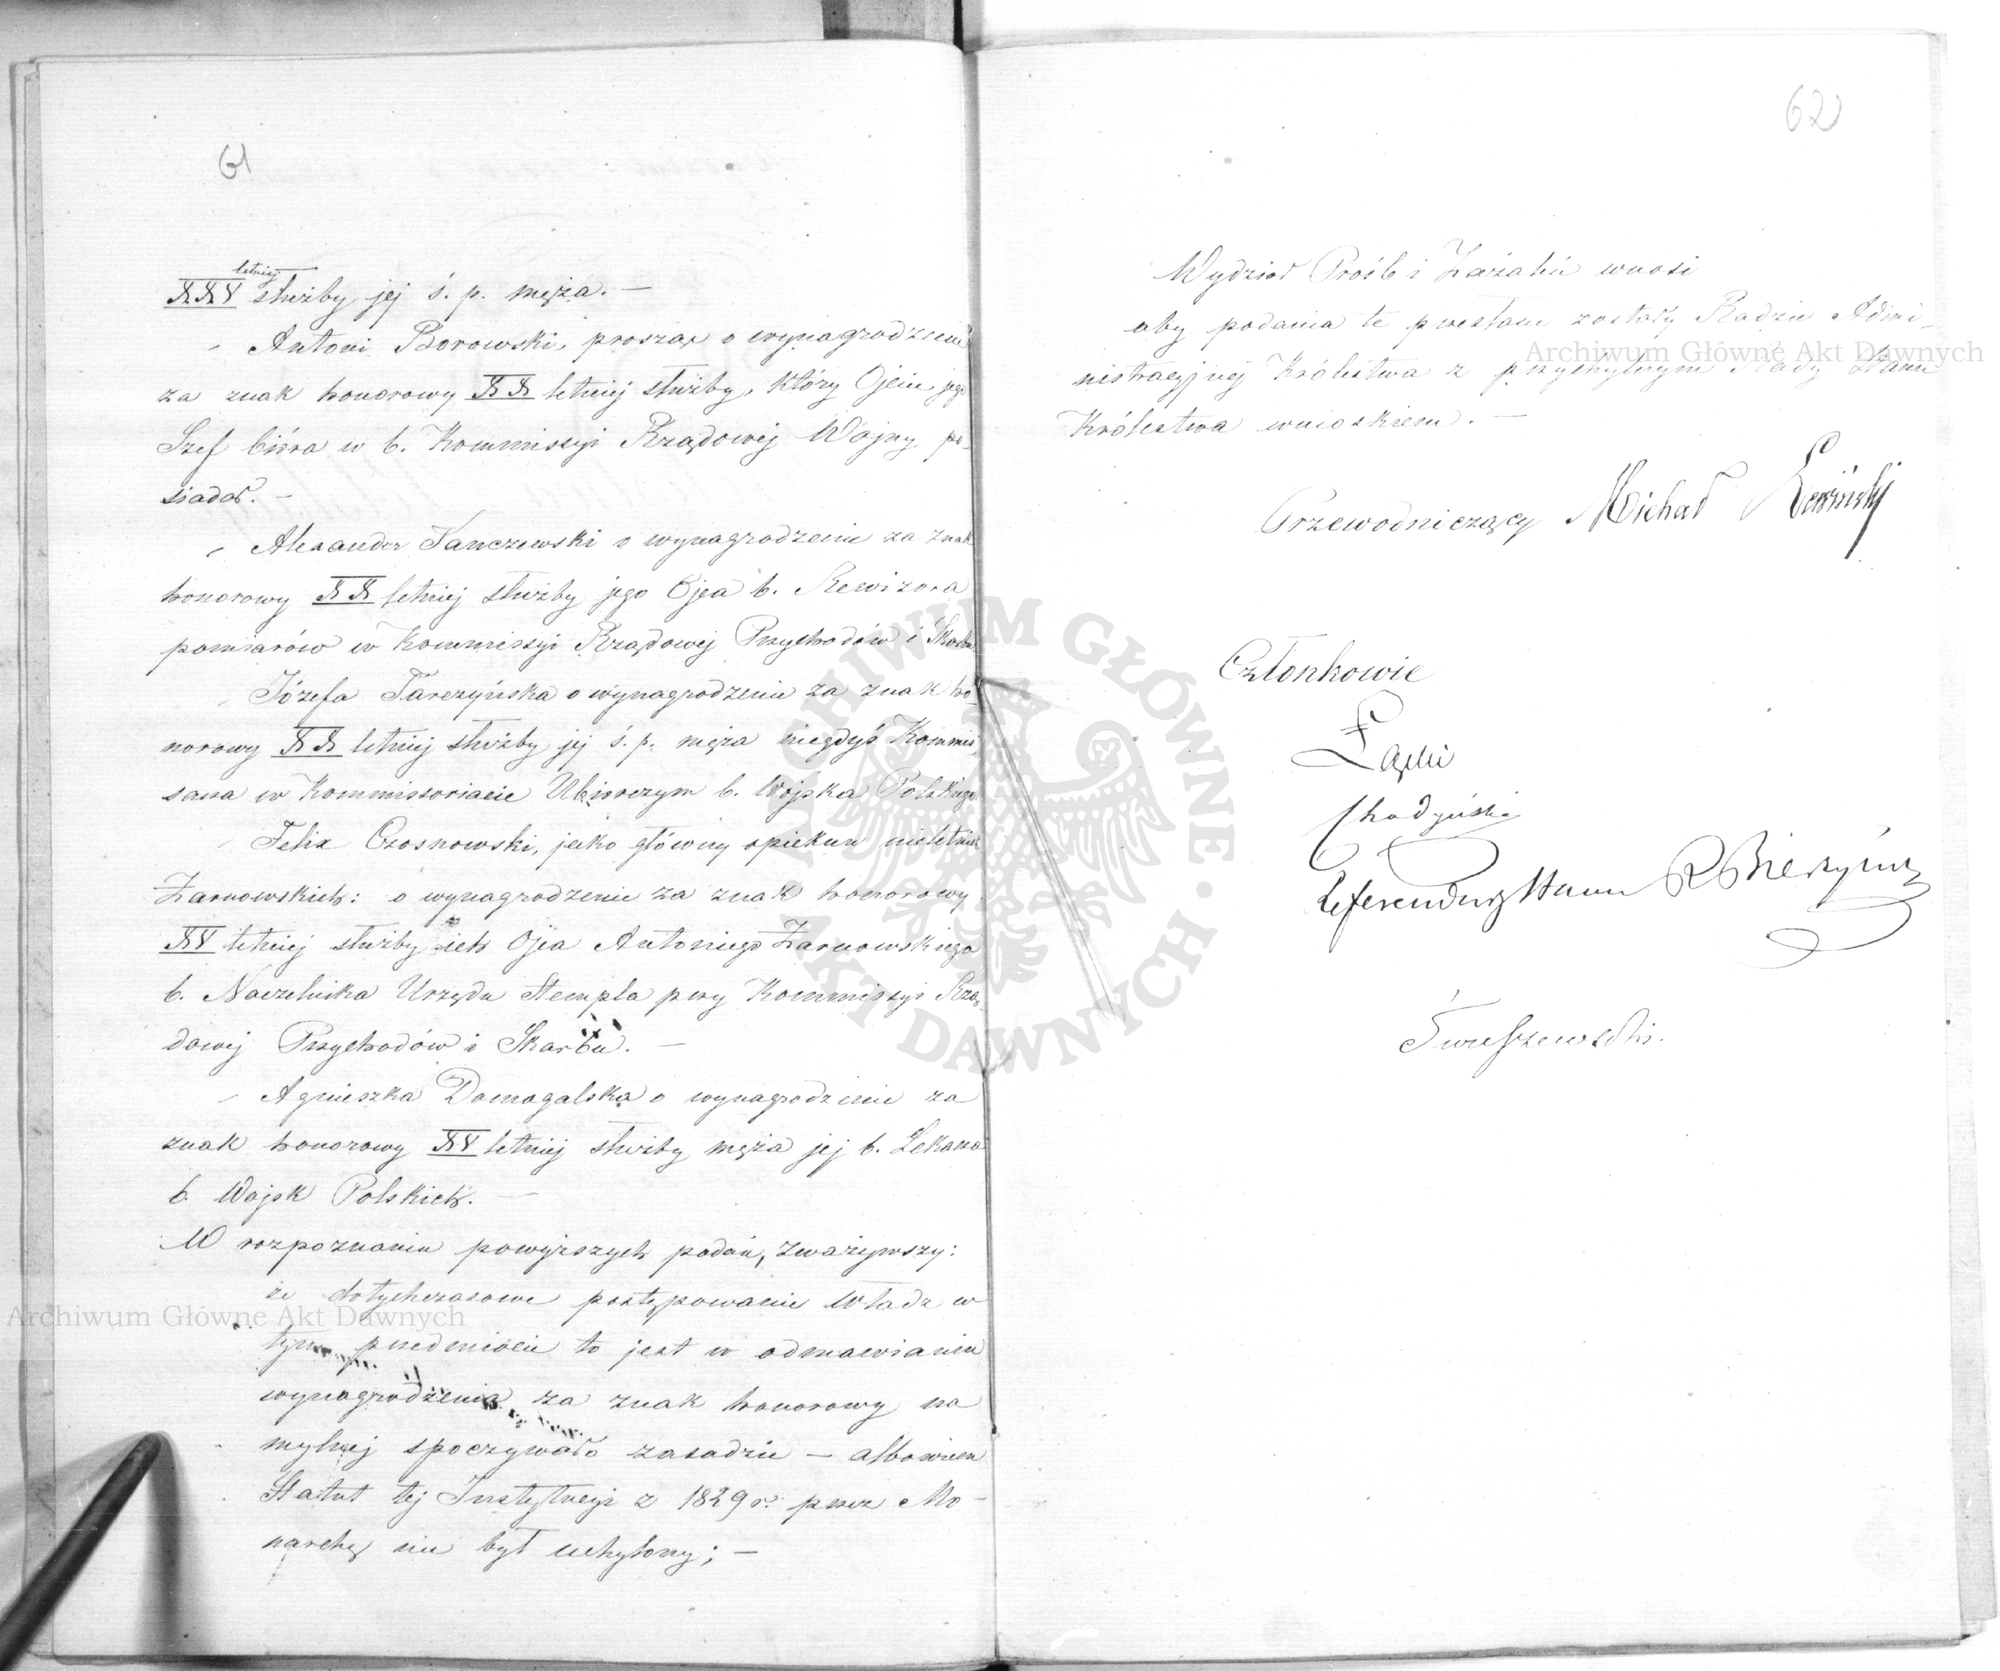 61
letniej
XXV służby jej ś. p. męża. —
Antoni Borowski, prosząc o wynagrodzenie
za znak honorowy XX letniej służby, który Ojciec jego
Szef biura w b. Kommissyi Rządowej Wojny po-
siadał. —
Alexander Janczewski o wynagrodzenie za znak
honorowy XX letniej służby jego Ojca b. Rewizora
pomiarów w Kommissyi Rządowej Przychodów i Skarbu
Józefa Tarczyńska o wynagrodzenie za znak ho-
norowy XX letniej służby jej ś. p. męża niegdyś Kommis-
sarza w Kommissoriacie Ubiorczym b. Wojska Polskiego
Felix Czosnowski, jako główny opiekun nieletnich
Żarnowskich: o wynagrodzenie za znak honorowy
XV letniej służby ich Ojca Antoniego Żarnowskiego
b. Naczelnika Urzędu Stempla przy Kommissyi Rzą-
dowej Przychodów i Skarbu. —
Agnieszka Domagalska o wynagrodzenie za
znak honorowy XV letniej służby męża jej b. Lekarza
b. Wojsk Polskich. —
W rozpoznaniu powyższych podań, zważywszy:
że dotychczasowe postępowanie Władz w
tym przedmiocie to jest w odmawianiu
wynagrodzenia za znak honorowy na
mylnej spoczywało zasadzie — albowiem
Statut tej Instytucyi z 1829 r. przez Mo-
narchę nie był uchylony; —
62
Wydział Próśb i Zażaleń wnosi
aby podania te przesłane zostały Radzie Admi-
nistracyjnej Królestwa z przychylnym Rady Stanu
Królestwa wnioskiem. —
Przewodniczący Michał
Członkowie
Łącki
Referendarz Stanu
Archiwum Główne Akt Dawnych
Archiwum Główne Akt Dawnych
ARCHIWUM GŁÓWNE · AKT DAWNYCH ·